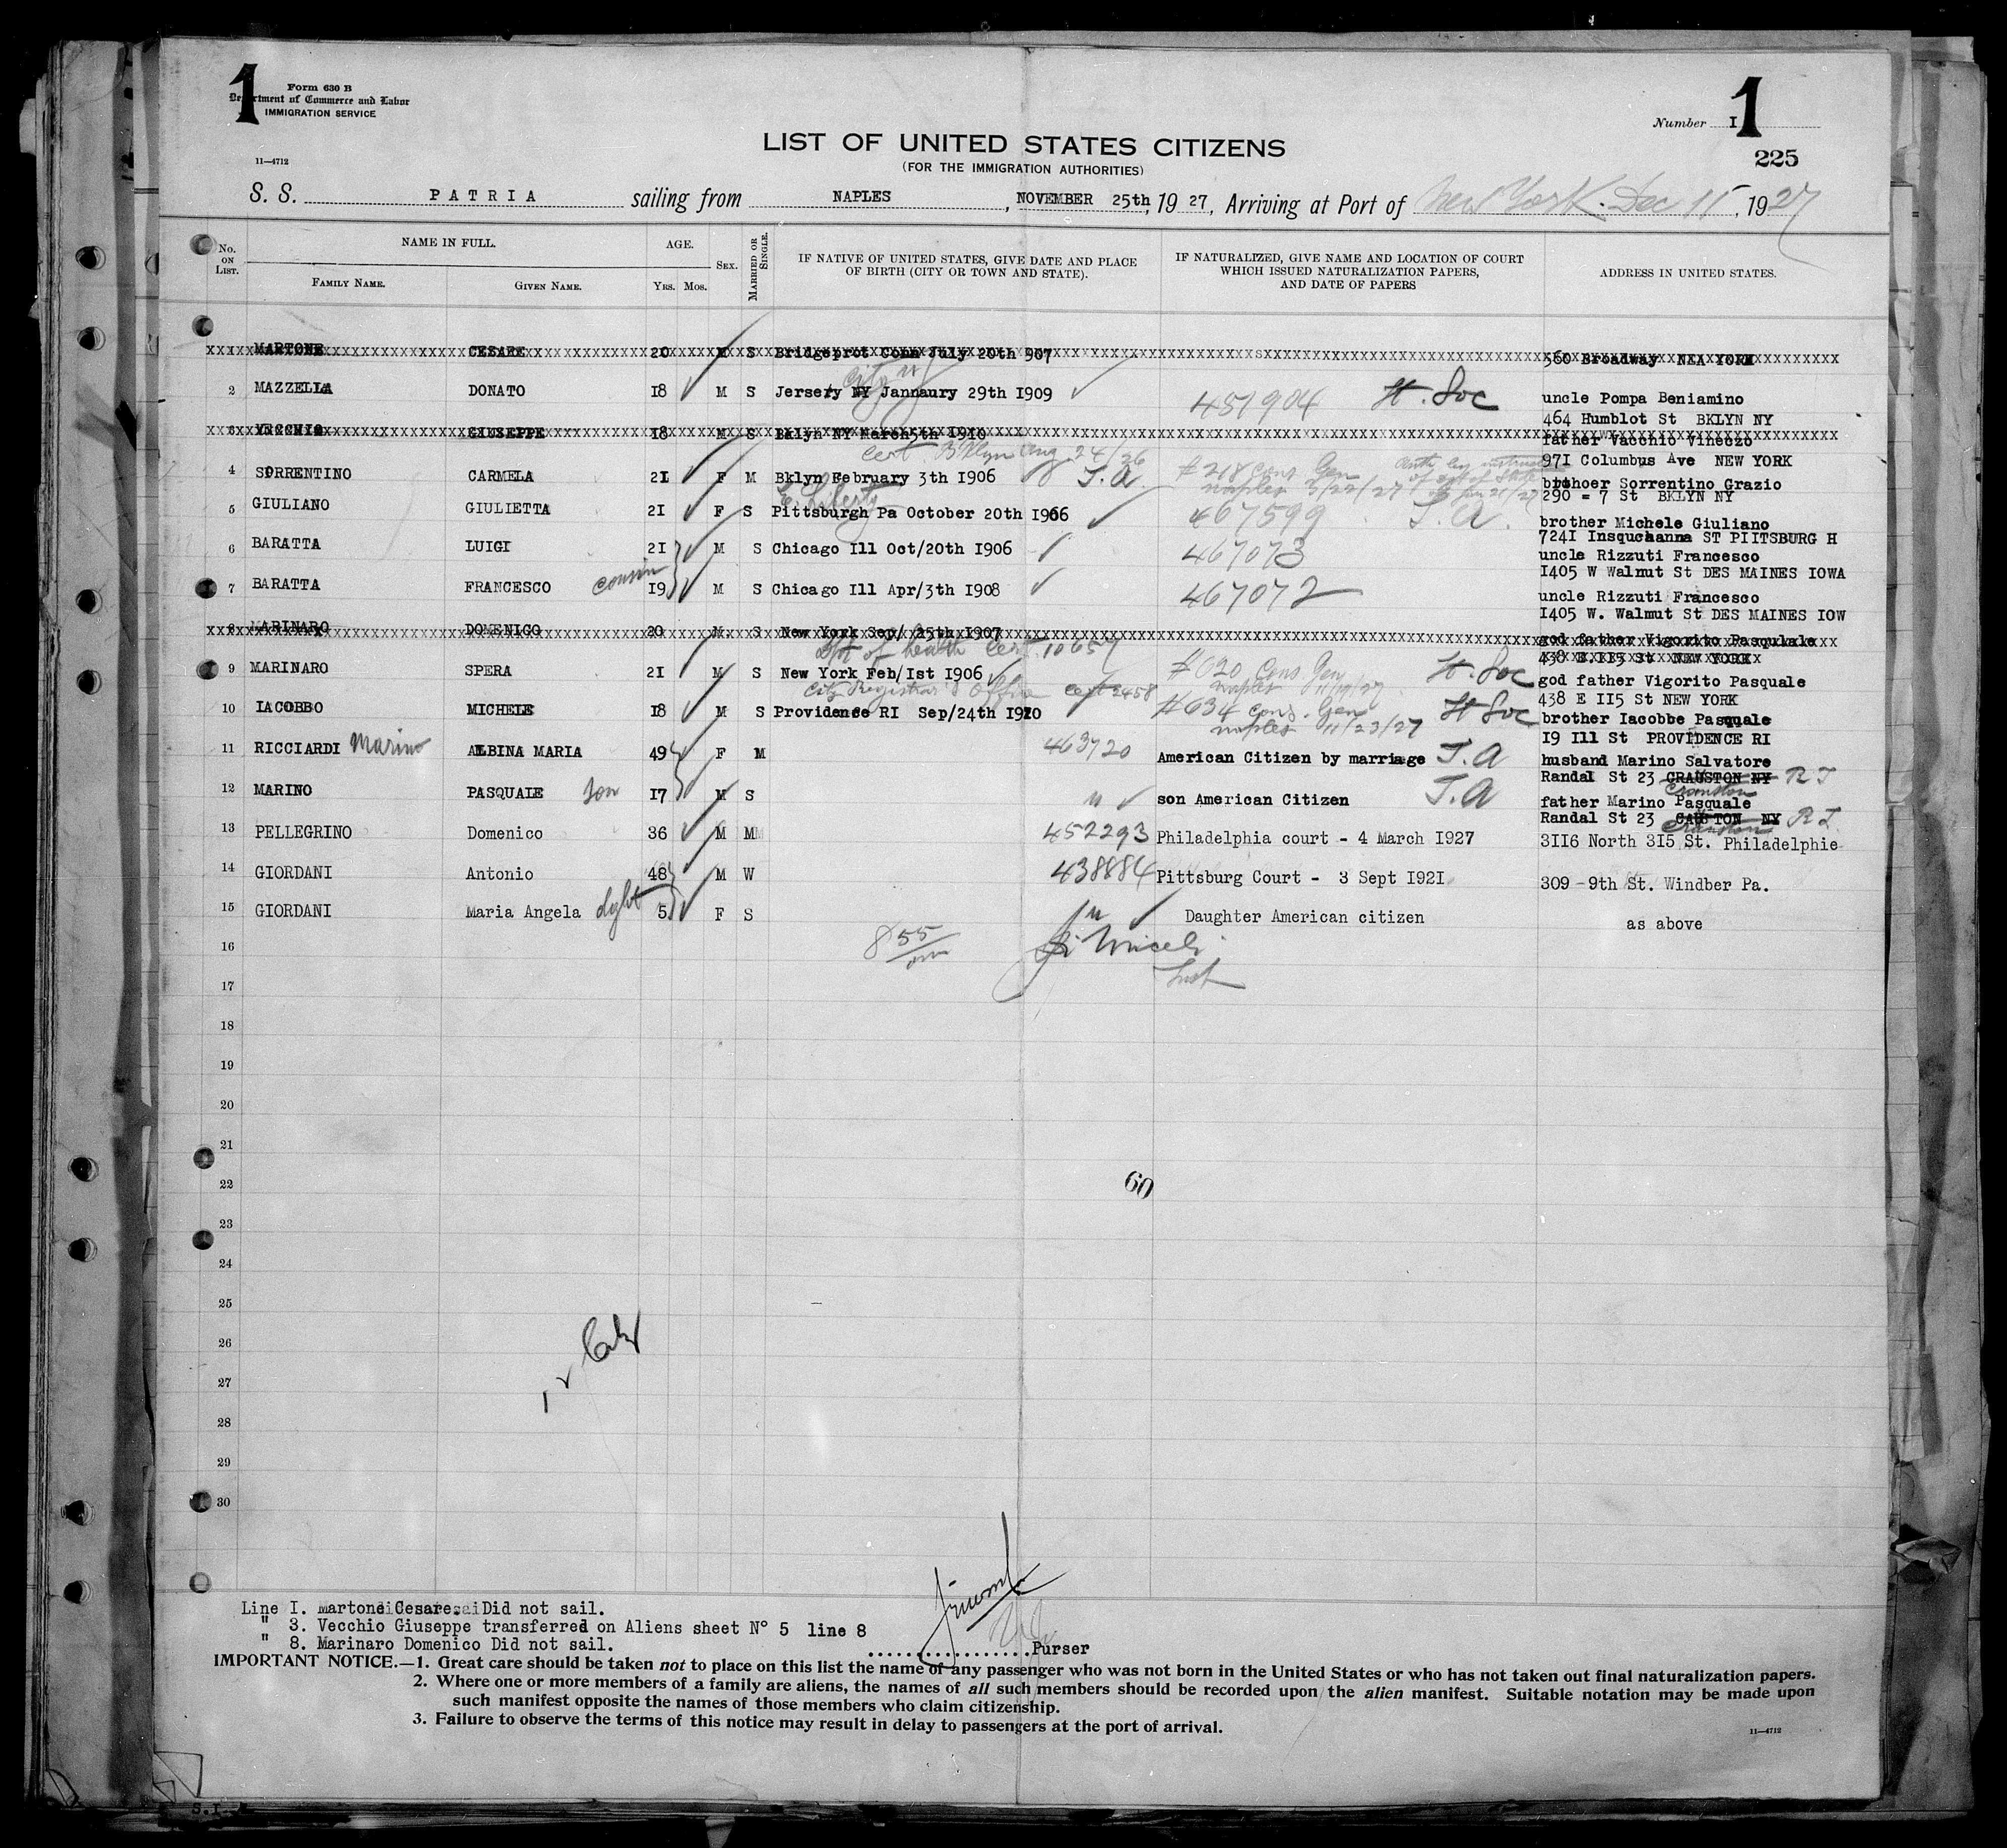 1
Form 630 B
Department of Commerce and Labor
IMMIGRATION SERVICE
11—4712
Number I 1
225
LIST OF UNITED STATES CITIZENS
(FOR THE IMMIGRATION AUTHORITIES)
S. S. PATRIA sailing from NAPLES, NOVEMBER 25th, 19 27, Arriving at Port of New York. Dec 11, 1927
No. ON LIST.
NAME IN FULL.
FAMILY NAME.
GIVEN NAME.
AGE.
YRS. MOS.
SEX.
MARRIED OR SINGLE.
IF NATIVE OF UNITED STATES, GIVE DATE AND PLACE OF BIRTH (CITY OR TOWN AND STATE).
IF NATURALIZED, GIVE NAME AND LOCATION OF COURT WHICH ISSUED NATURALIZATION PAPERS, AND DATE OF PAPERS
ADDRESS IN UNITED STATES.
1 MARTONE CESARE 20 M S Bridgeprot Conn July 20th 907 560 Broadway NEA YORK
City
2 MAZZELLA DONATO 18 M S Jersety NY Jannaury 29th I909 451904 It. Soc uncle Pompa Beniamino
464 Humblot St BKLYN NY
3 VECCHIO GIUSEPPE I8 M S Bklyn NY March5th I910 father Vacchio Vineczo
cert Bklyn Aug 24/26
971 Columbus Ave NEW YORK
4 SORRENTINO CARMELA 2I F M Bklyn February 3th I906 T.A. #218 Cons. Gen Naples 3/22/27 brothoer Sorrentino Grazio
290 = 7 St BKLYN NY
E. Liberty
5 GIULIANO GIULIETTA 2I F S Pittsburgh Pa October 20th I906 467599 T.A. brother Michele Giuliano
724I Insquchanna ST PIITSBURG H
6 BARATTA LUIGI 2I M S Chicago Ill Oct/20th I906 467073 uncle Rizzuti Francesco
I405 W Walnut St DES MAINES IOWA
7 BARATTA FRANCESCO cousin I9 M S Chicago Ill Apr/3th I908 467072 uncle Rizzuti Francesco
I405 W. Walmut St DES MAINES IOW
8 MARINARO DOMENICO 20 M S New York Sep/ 25th I907 god father Vigorito Pasqulale
Dpt of health Cert. 10657
438 E.II5 St NEW YORK
9 MARINARO SPERA 2I M S New York Feb/Ist I906 #620 Cons. Gen Naples 11/19/27 It. Soc god father Vigorito Pasquale
438 E II5 St NEW YORK
City Registrar's Office cert 2458
10 IACOBBO MICHELE I8 M S Providense RI Sep/24th I9I0 #634 Cons. Gen Naples 11/23/27 It Soc brother Iacobbe Pasquale
I9 Ill St PROVIDENCE RI
11 RICCIARDI Marino ALBINA MARIA 49 F M 463720 American Citizen by marriage T.A husband Marino Salvatore
Randal St 23 CRAUSTON NY R I
Cranston
12 MARINO PASQUALE son I7 M S " son American Citizen T.A father Marino Pasquale
Randal St 23 CAUSTON NY R I.
Cranston
13 PELLEGRINO Domenico 36 M M 452293 Philadelphia court - 4 March I927 3II6 North 3I5 St. Philadelphie
14 GIORDANI Antonio 48 M W 438884 Pittsburg Court - 3 Sept I92I 309 -9th St. Windber Pa.
15 GIORDANI Maria Angela dght 5 F S " Daughter American citizen as above
16
8 55
17
18
19
20
21
22
60
23
24
25
26
27
28
29
30
Line I. Martone Cesare. Did not sail.
" 3. Vecchio Giuseppe transferred on Aliens sheet N° 5 line 8
" 8. Marinaro Domenico Did not sail.
Purser
IMPORTANT NOTICE.—1. Great care should be taken not to place on this list the name of any passenger who was not born in the United States or who has not taken out final naturalization papers.
2. Where one or more members of a family are aliens, the names of all such members should be recorded upon the alien manifest. Suitable notation may be made upon
such manifest opposite the names of those members who claim citizenship.
3. Failure to observe the terms of this notice may result in delay to passengers at the port of arrival.
11—4712
S.I